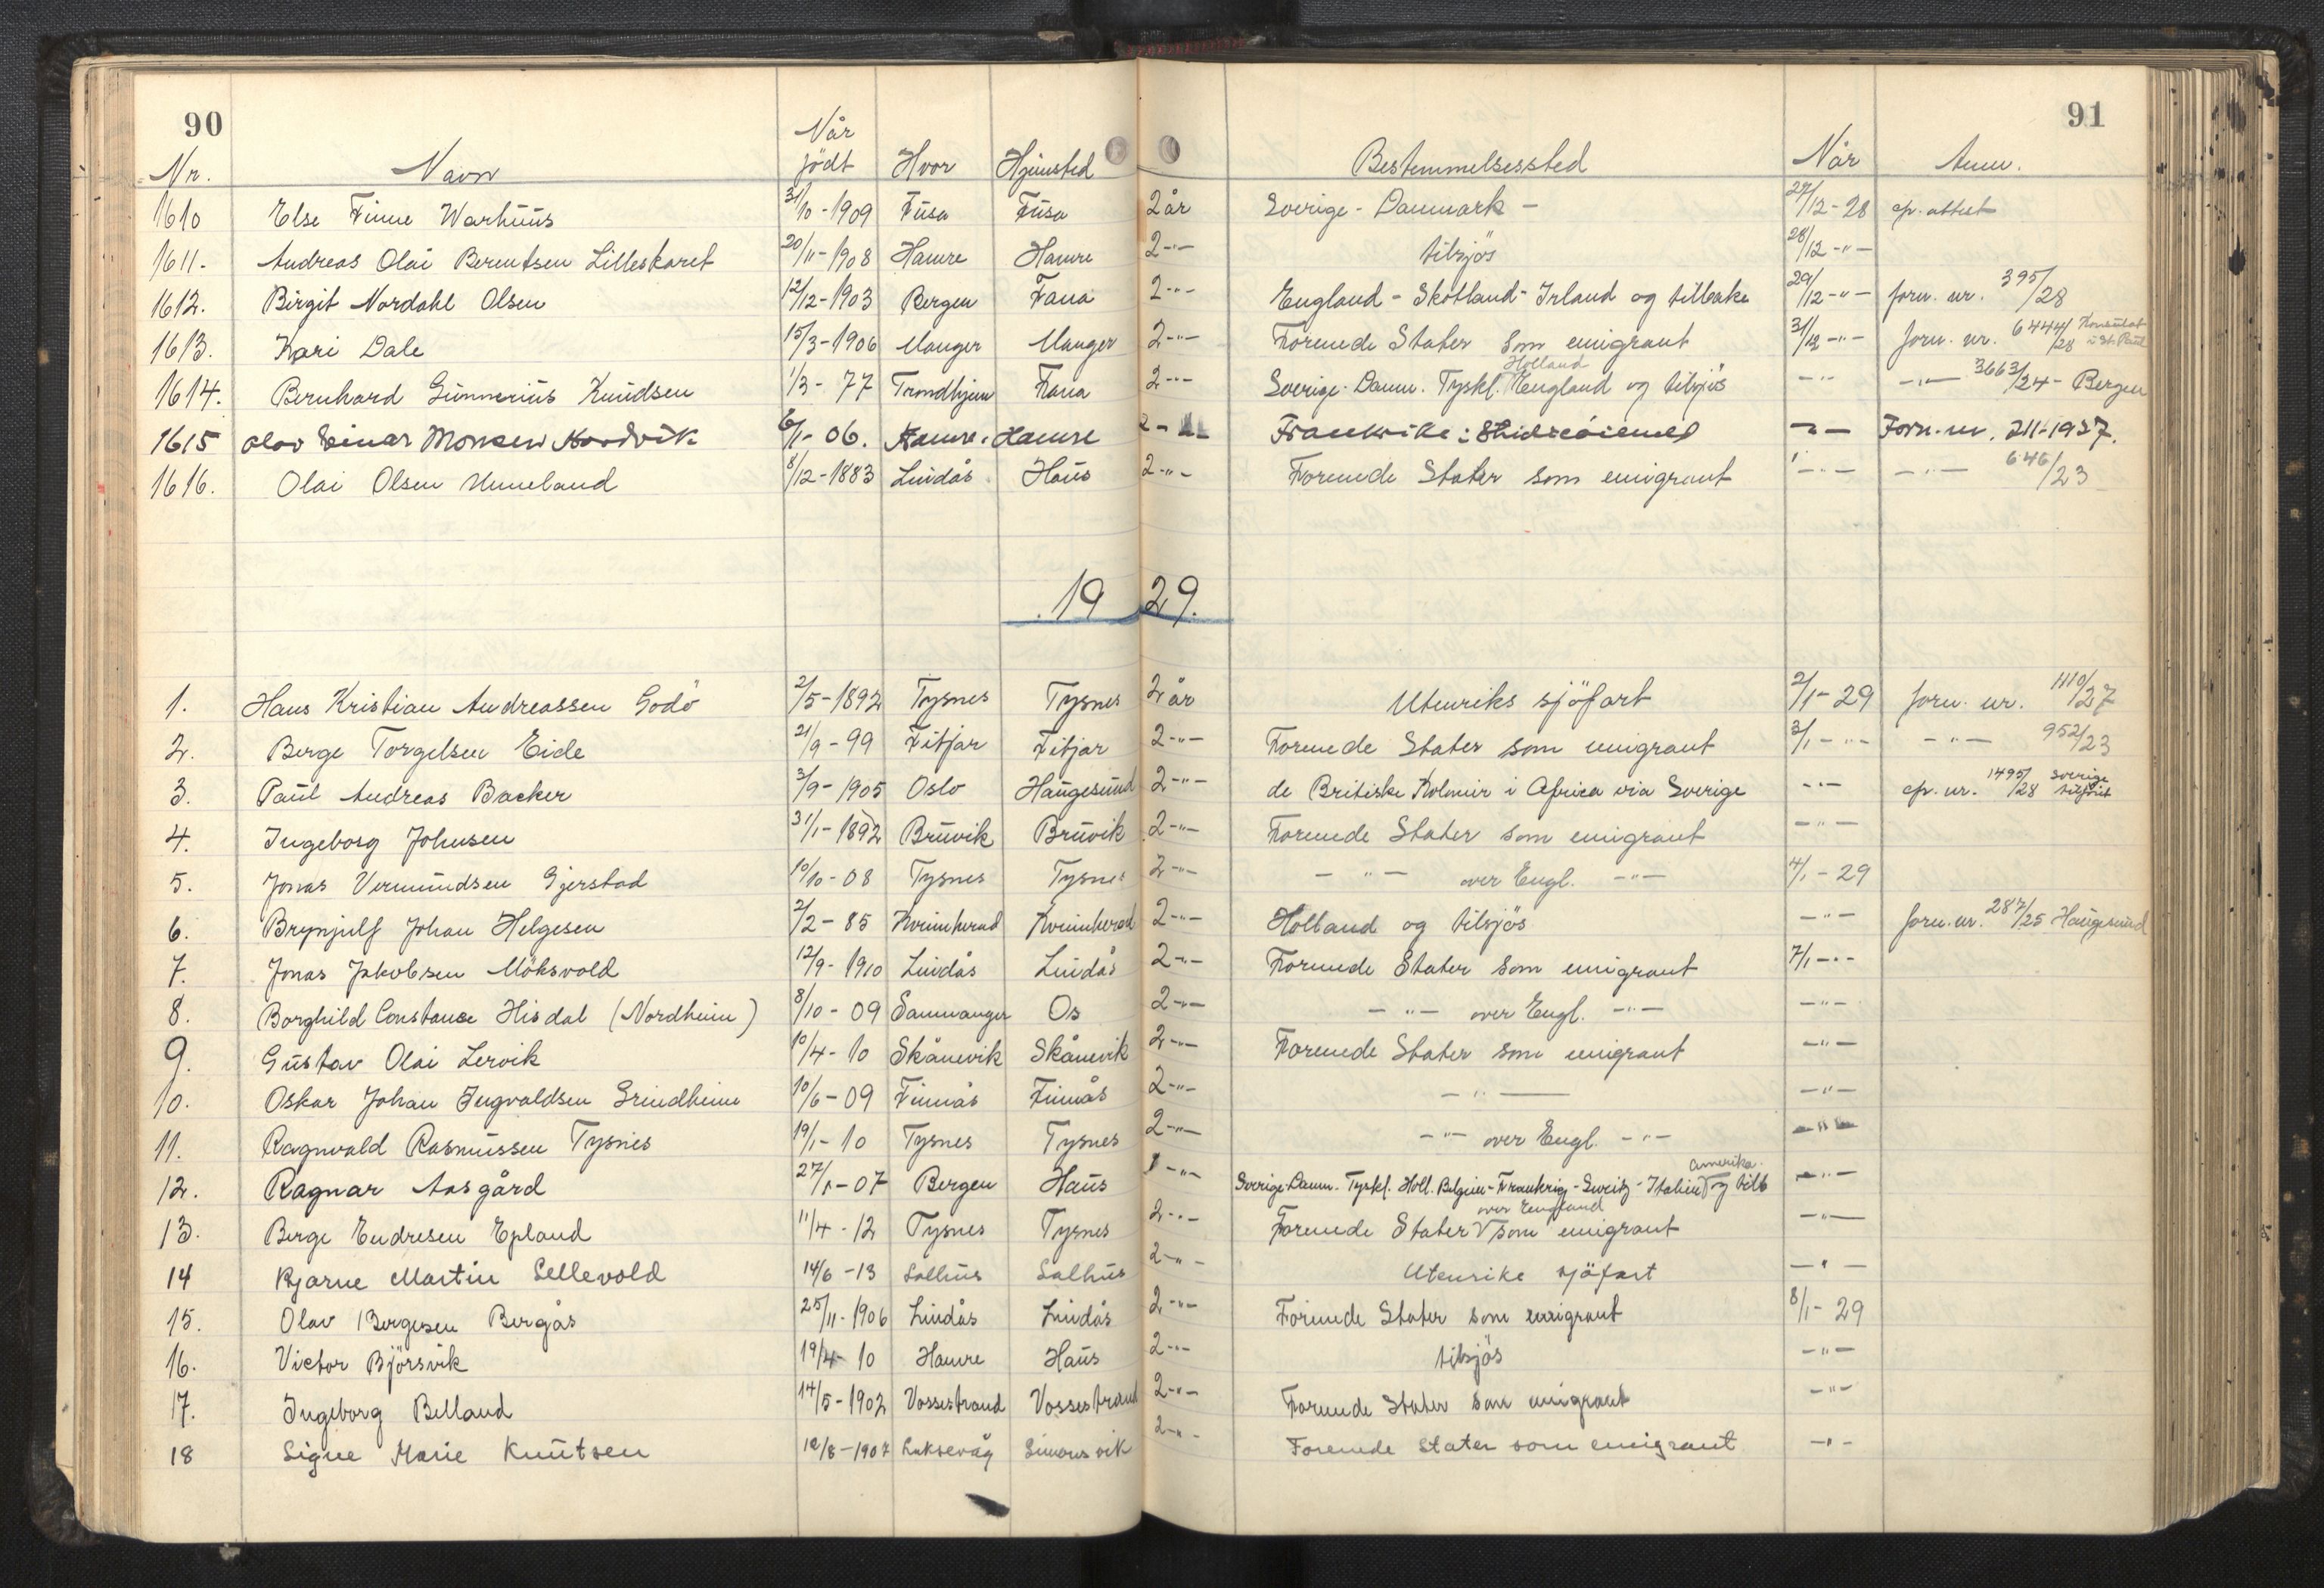 90
91
Nr. Navn Når födt Hvor Hjemsted Bestemmelsessted Når Anm.
1610 Else Finne Warhuus 31/10-1909 Fusa Fusa 2 år Sverige - Danmark - 27/12-28 ep. attest
1611. Andreas Olai Berentsen Lilleskaret 20/11-1908 Hamre Hamre 2-"- tilsjös 28/12-"-
1612. Birgit Nordahl Olsen 12/12-1903 Bergen Fana 2-"- England - Skotland - Irland og tilbake 29/12-"- forn. nr. 395/28
1613. Kari Dale 15/3-1906 Manger Manger 2-"- Forenede Stater som emigrant 31/12-"- forn. nr. 6444/28 Konsulat i St. Paul
1614. Bernhard Gunnerius Knudsen 1/3-77 Trondhjem Fana 2-"- Sverige - Danm. Tyskl. Holland England og tilsjös -"- -"- 3663/24 - Bergen
1615 Olav Einar Monsen Nordvik 6/1-06. Hamre. Hamre 2-"- Frankrike i Studieöiemed -"- Forn. nr. 211-1927.
1616. Olai Olsen Unneland 8/12-1883 Lindås Haus 2-"- Forenede Stater som emigrant -"- -"- 646/23
1929.
1. Hans Kristian Andreassen Godö 2/5-1892 Tysnes Tysnes 2 år Utenriks sjöfart 2/1-29 forn. nr. 1110/27
2. Berge Torgelsen Eide 21/9-99 Fitjar Fitjar 2-"- Forenede Stater som emigrant 3/1-"- -"- 952/23
3. Paul Andreas Backer 3/9-1905 Oslo Haugesund 2-"- de Britiske Kolonier i Africa via Sverige -"- ep. nr. 1495/28 Sverige
4. Ingeborg Johnsen 31/1-1892 Bruvik Bruvik 2-"- Forenede Stater som emigrant -"-
5. Jonas Vermundsen Gjerstad 10/10-08 Tysnes Tysnes 2-"- -"- over Engl. -"- 4/1-29
6. Brynjulf Johan Helgesen 2/2-85 Kvinherad Kvinherad 2-"- Holland og tilsjös -"- forn. nr. 287/25 Haugesund
7. Jonas Jakobsen Möksvold 12/9-1910 Lindås Lindås 2-"- Forenede Stater som emigrant 7/1-"-
8. Borghild Constanse Hisdal (Nordheim) 8/10-09 Samnanger Os 2-"- -"- over Engl. -"- -"-
9. Gustav Olai Lervik 10/4-10 Skånevik Skånevik 2-"- Forenede Stater som emigrant -"-
10. Oskar Johan Ingvaldsen Grindheim 10/6-09 Finnås Finnås 2-"- -"- -"-
11. Ragnvald Rasmussen Tysnes 19/1-10 Tysnes Tysnes 2-"- -"- over Engl. -"- -"-
12. Ragnar Aasgård 27/1-07 Bergen Haus -"- Sverige - Danm. - Tyskl. Holl. Belgien - Frankrig - Sveitz - Italien Amerika og tilb -"-
13. Berge Endresen Epland 11/4-12 Tysnes Tysnes 2-"- Forenede Stater over England som emigrant -"-
14 Bjarne Martin Sellevold 14/6-13 Salhus Salhus 2-"- Utenriks sjöfart -"-
15. Olav Bergesen Bergås 25/11-1906 Lindås Lindås 2-"- Forenede Stater som emigrant 8/1-29
16. Victor Björsvik 19/4-10 Hamre Haus 2-"- tilsjös -"-
17. Ingeborg Belland 14/5-1902 Vossestrand Vossestrand 2-"- Forenede Stater som emigrant -"-
18 Signe Marie Knutsen 12/8-1907 Laksevåg Simonsvik 2-"- Forenede Stater som emigrant -"-